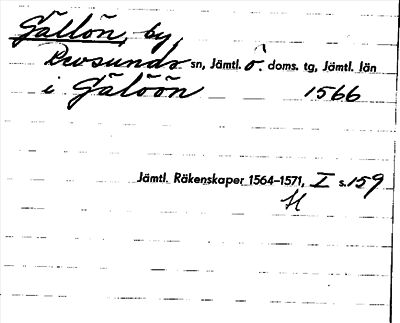 Gällön, by
Revsunds sn, Jämtl. ö. doms. tg, Jämtl. län
i Gälöön 1566
Jämtl. Räkenskaper 1564-1571, I s. 159